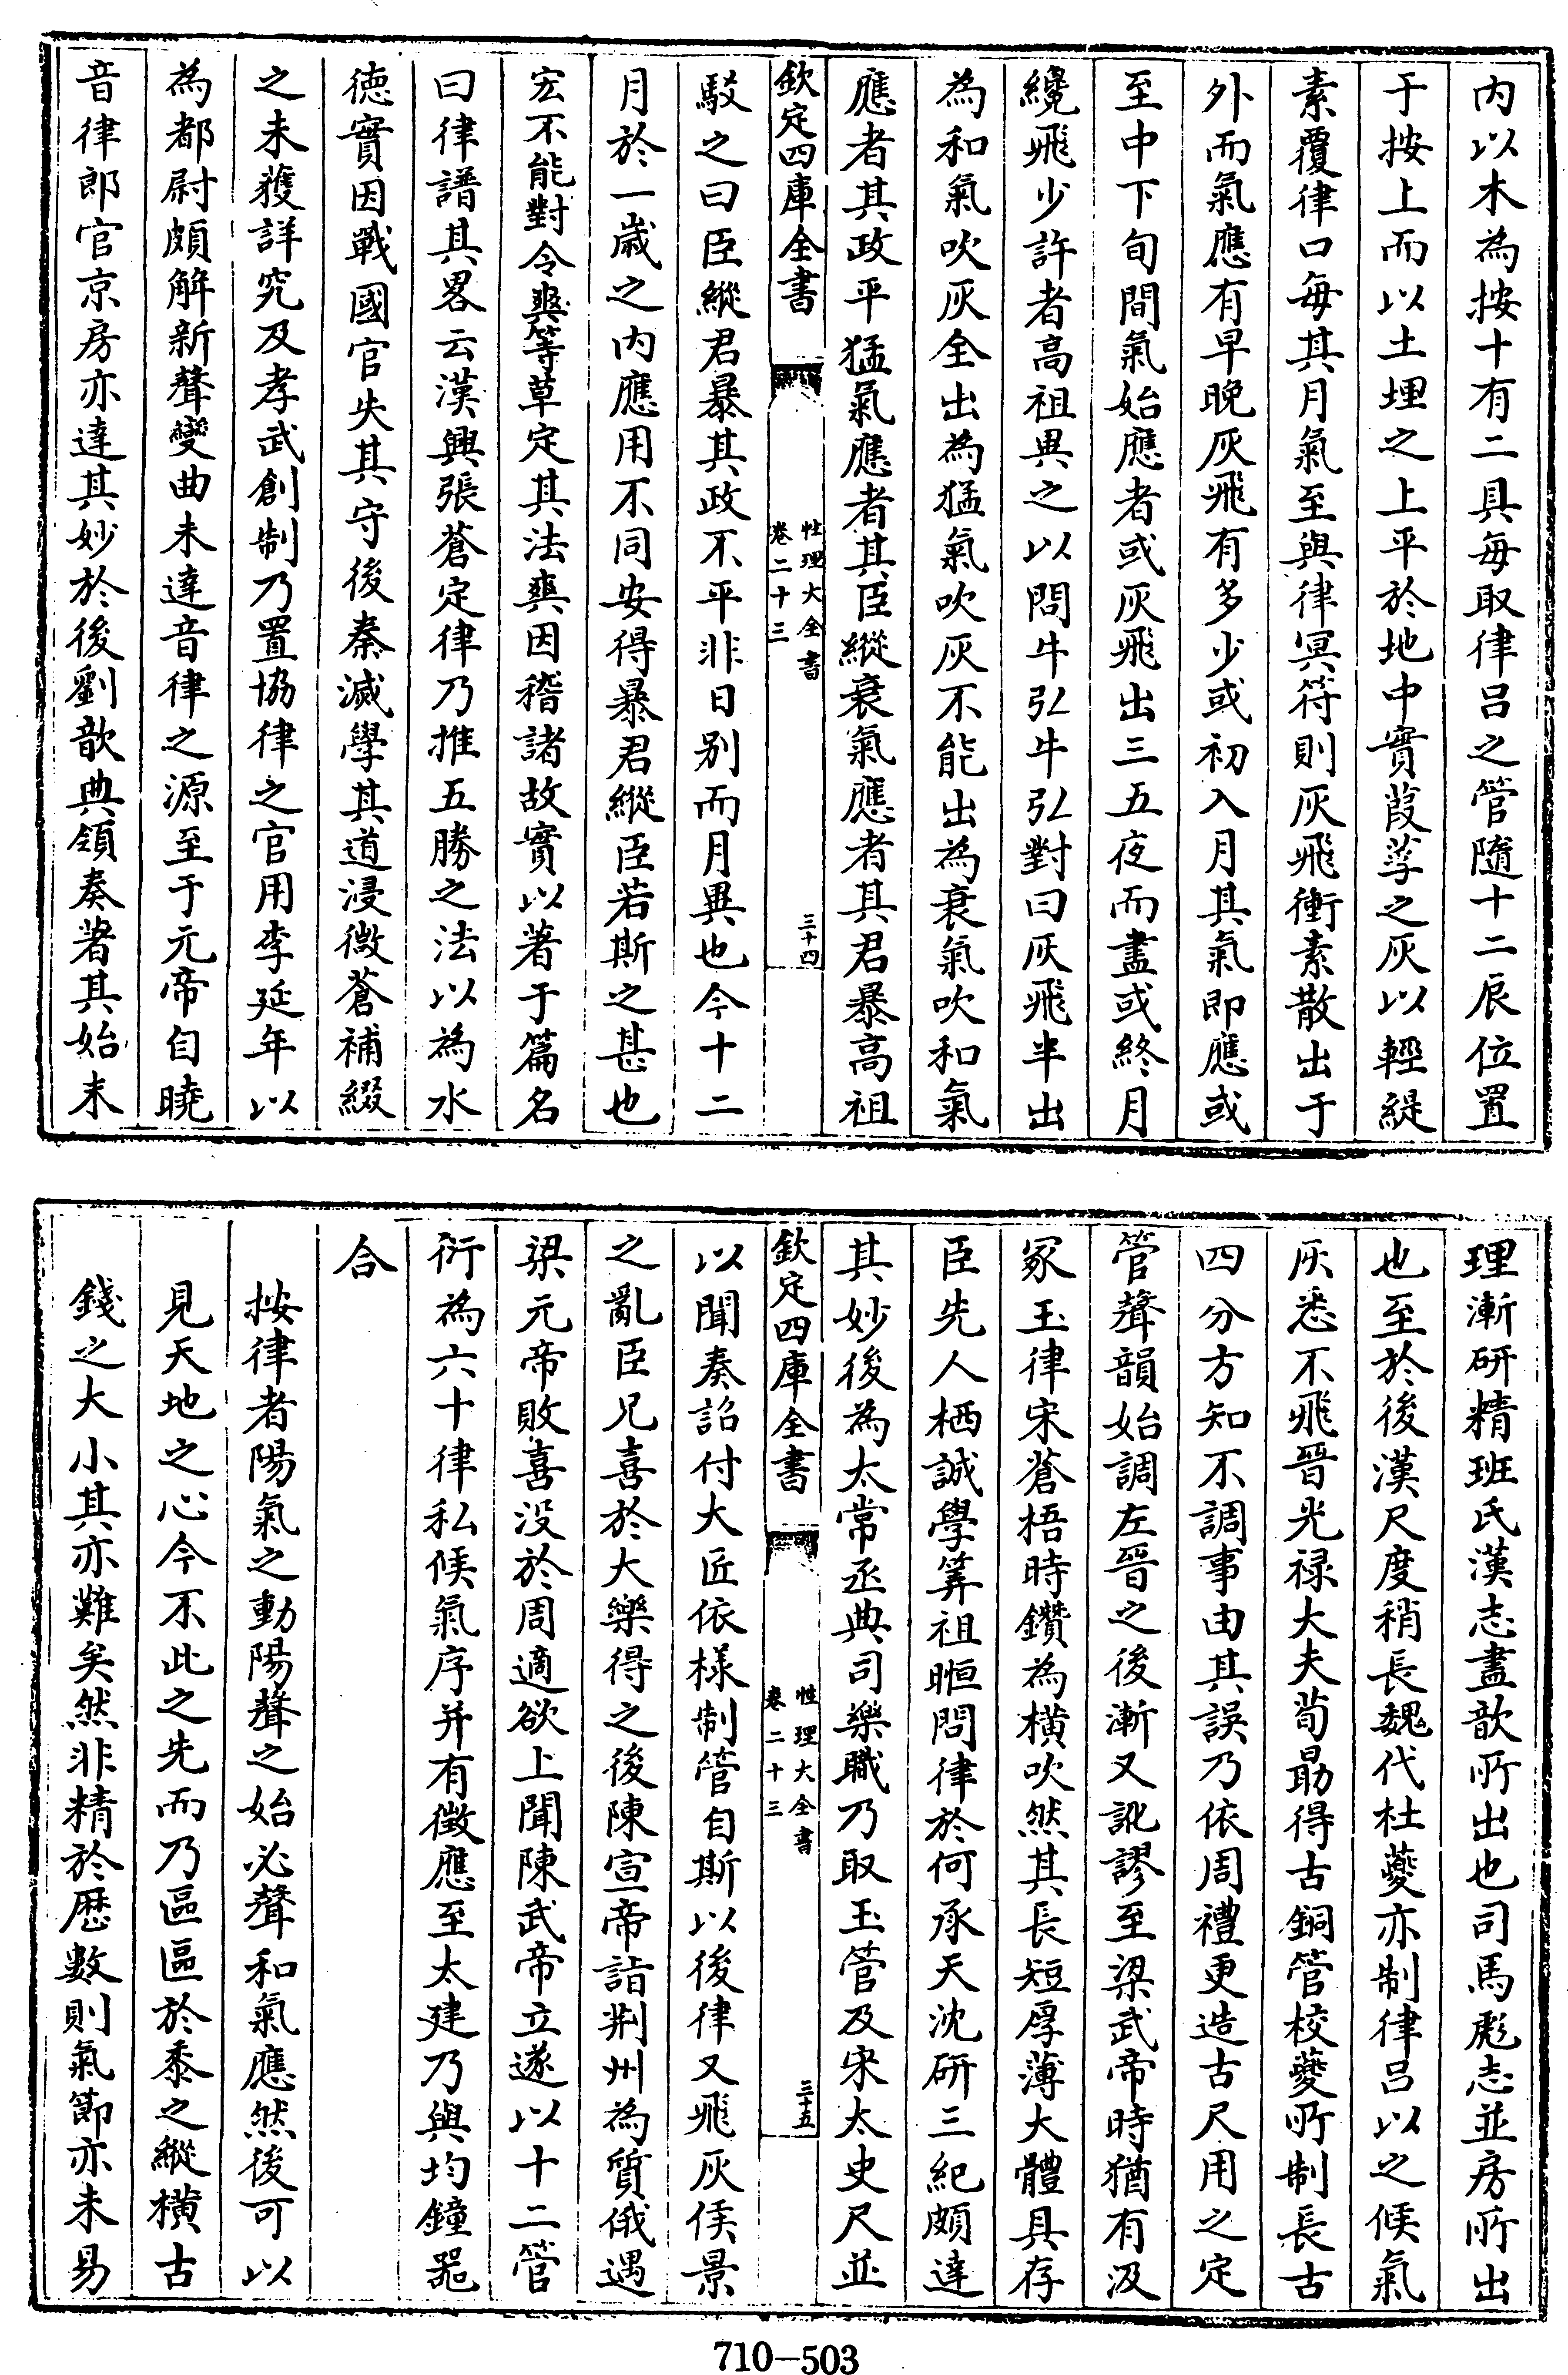 内以木為按十有二具每取律呂之管隨十二辰位置
于按上而以土埋之上平於地中實葭莩之灰以輕緹
素覆律口每其月氣至與律冥符則灰飛衝素散出于
外而氣應有早晚灰飛有多少或初入月其氣即應或
至中下旬間氣始應者或灰飛出三五夜而盡或終月
纔飛少許者高祖異之以問牛弘牛弘對曰灰飛半出
為和氣吹灰全出為猛氣吹灰不能出為衰氣吹和氣
應者其政平猛氣應者其臣縱衰氣應者其君暴高祖
欽定四庫全書
性理大全書
卷二十三
三十四
駁之曰臣縱君暴其政不平非日别而月異也今十二
月於一歲之内應用不同安得暴君縱臣若斯之甚也
宏不能對令爽等草定其法爽因稽諸故實以著于篇名
曰律譜其畧云漢興張蒼定律乃推五勝之法以為水
徳實因戰國官失其守後秦滅學其道浸微蒼補綴
之未獲詳究及孝武創制乃置協律之官用李延年以
為都尉頗解新聲變曲未達音律之源至于元帝自曉
音律郎官京房亦達其妙於後劉歆典領奏著其始末
理漸研精班氏漢志盡歆所出也司馬彪志並房所出
也至於後漢尺度稍長魏代杜夔亦制律呂以之候氣
灰悉不飛晉光禄大夫荀勗得古銅管校夔所制長古
四分方知不調事由其誤乃依周禮更造古尺用之定
管聲韻始調左晉之後漸又訛謬至梁武帝時猶有汲
冢玉律宋蒼梧時鑽為橫吹然其長短厚薄大體具存
臣先人栖誠學筭祖暅問律於何承天沈研三紀頗達
其妙後為太常丞典司樂職乃取玉管及宋太史尺並
欽定四庫全書
性理大全書
卷二十三
三十五
以聞奏詔付大匠依様制管自斯以後律又飛灰侯景
之亂臣兄喜於大樂得之後陳宣帝詣荆州為質俄遇
梁元帝敗喜没於周適欲上聞陳武帝立遂以十二管
衍為六十律私候氣序并有徵應至太建乃與均鐘器
合
按律者陽氣之動陽聲之始必聲和氣應然後可以
見天地之心今不此之先而乃區區於黍之縱横古
錢之大小其亦難矣然非精於歴數則氣節亦未易
710-503